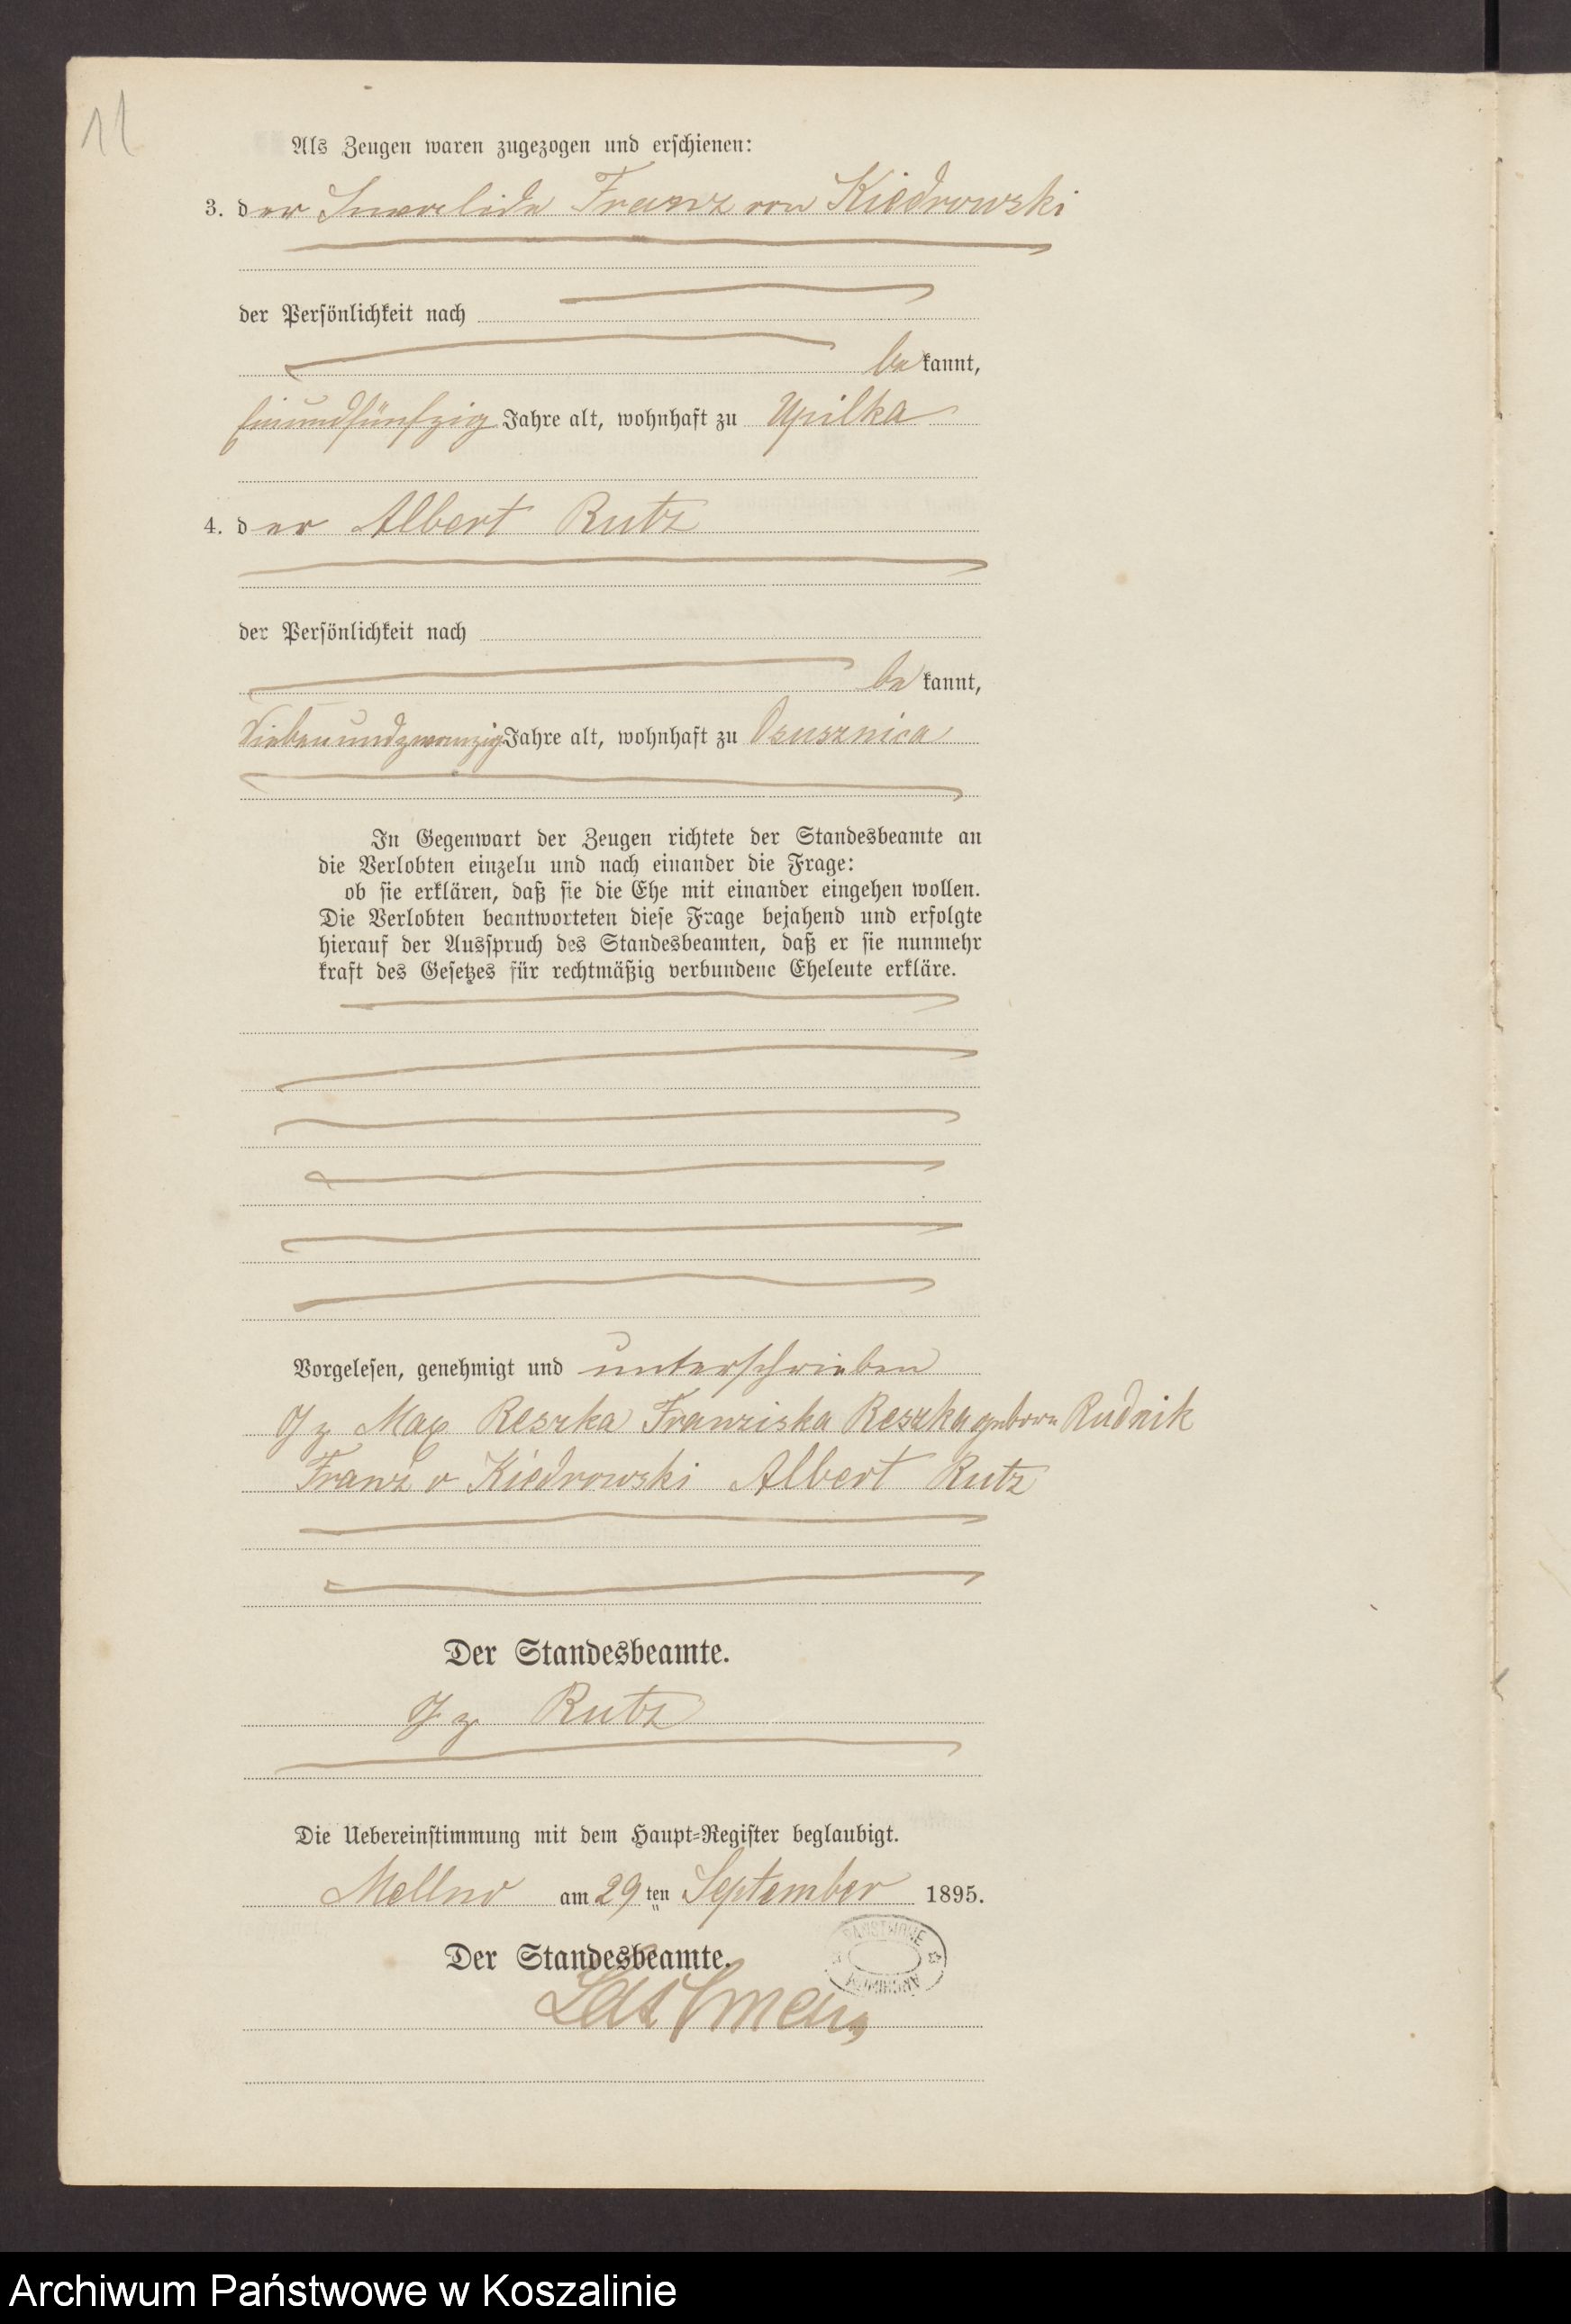 11
Als Zeugen waren zugezogen und erschienen:
3. der Invalide Franz von Kiedrowski
der Persönlichkeit nach
bekannt,
einundfünfzig Jahre alt, wohnhaft zu Upilka
4. der Albert Rutz
der Persönlichkeit nach
bekannt,
siebenundzwanzig Jahre alt, wohnhaft zu Osusznica
In Gegenwart der Zeugen richtete der Standesbeamte an
die Verlobten einzeln und nach einander die Frage:
ob sie erklären, daß sie die Ehe mit einander eingehen wollen.
Die Verlobten beantworteten diese Frage bejahend und erfolgte
hierauf der Ausspruch des Standesbeamten, daß er sie nunmehr
kraft des Gesetzes für rechtmäßig verbundene Eheleute erkläre.
Vorgelesen, genehmigt und unterschrieben
gz Max Reszka Franziska Reszka geborn Rudnik
Franz v Kiedrowski Albert Rutz
Der Standesbeamte.
gz Rutz
Die Uebereinstimmung mit dem Haupt-Register beglaubigt.
Mellno am 29 ten September 1895.
Der Standesbeamte.
Archiwum Państwowe w Koszalinie